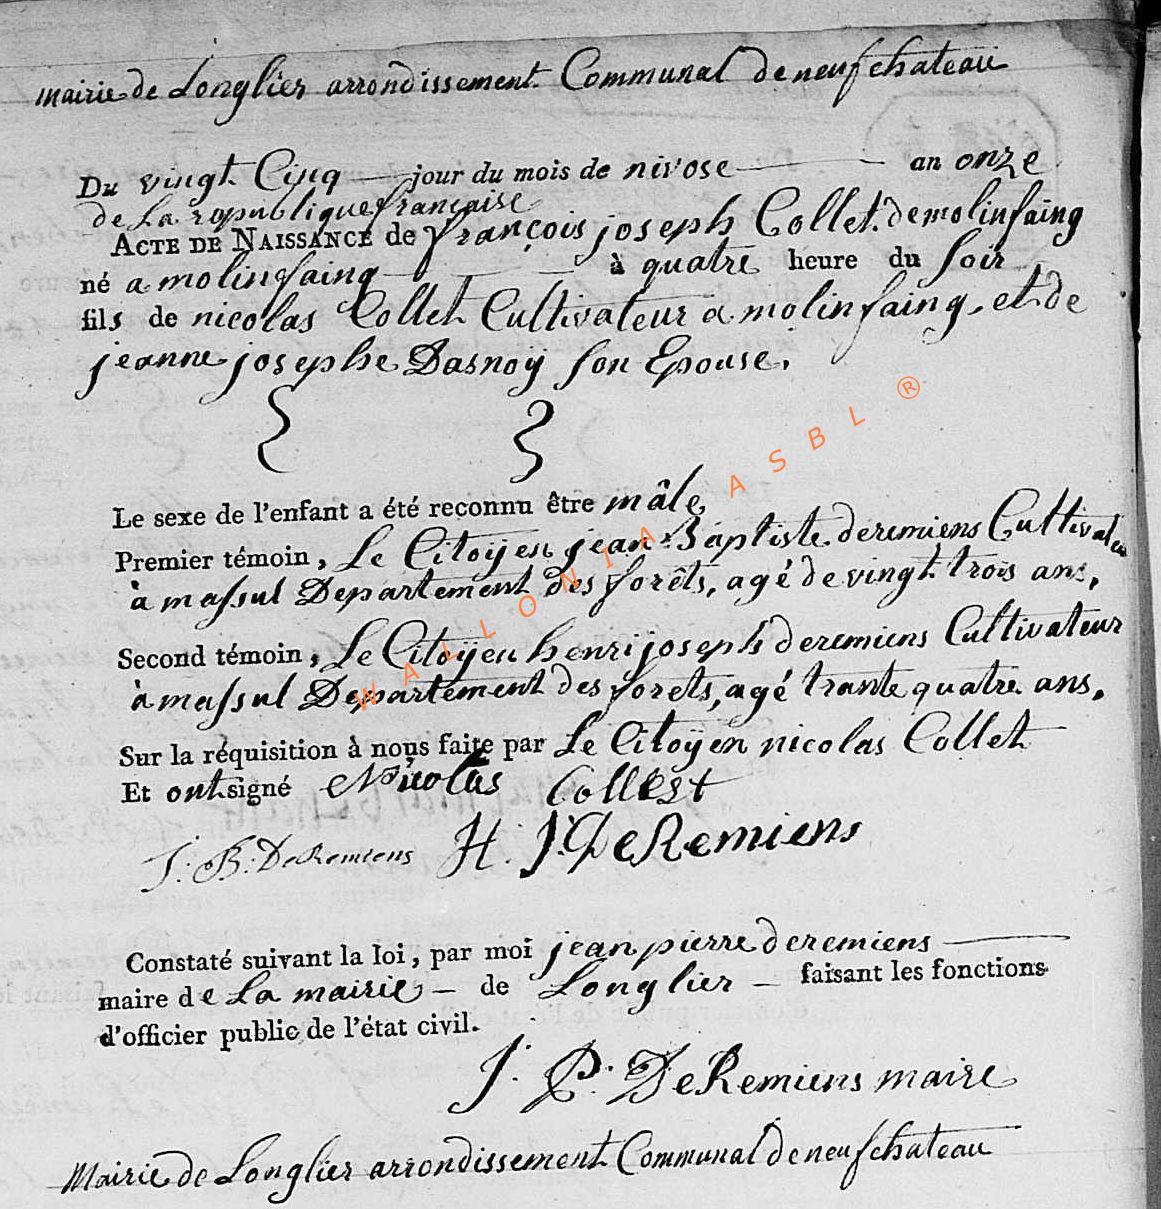 mairie de Longlier arrondissement Communal de neufchateau
Du vingt Cinq jour du mois de nivose an onze
de La republique française
ACTE DE NAISSANCE de françois joseph Collet demolinfaing
né a molinfaing à quatre heure du soir
fils de nicolas Collet Cultivateur a molinfaing, et de
jeanne josephe Dasnoÿ son Epouse.
Le sexe de l'enfant a été reconnu être mâle
Premier témoin, Le Citoÿen jean Baptiste deremiens Cultivateu
à massul Departement des forêts, agé de vingt trois ans,
Second témoin, Le Citoÿen henri joseph deremiens Cultivateur
à massul Departement des forets, agé trante quatre ans,
Sur la réquisition à nous faite par Le Citoÿen nicolas Collet
Et ont signé Nicolas Collest
J. B. DeRemiens H. J. DeRemiens
Constaté suivant la loi, par moi jean pierre deremiens
maire de La mairie de Longlier faisant les fonctions
d'officier public de l'état civil.
J. P. DeRemiens maire
Mairie de Longlier arrondissement Communal de neufchateau
WALLONIA ASBL ®